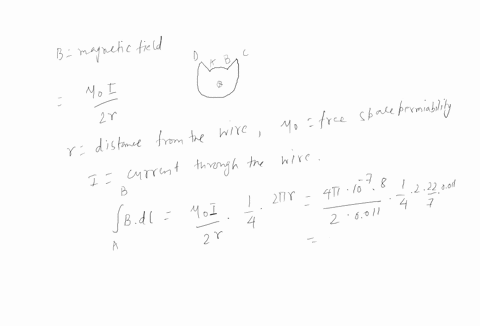 B = magnetic field
D A B C
= μ0 I / 2r
r = distance from the wire, μ0 = free space permiability
I = current through the wire.
∫_A^B B.dl = μ0 I / 2r . 1/4 . 2πr = 4π . 10^-7 . 8 / 2 . 0.011 . 1/4 . 2 . 22/7 . 0.011
=